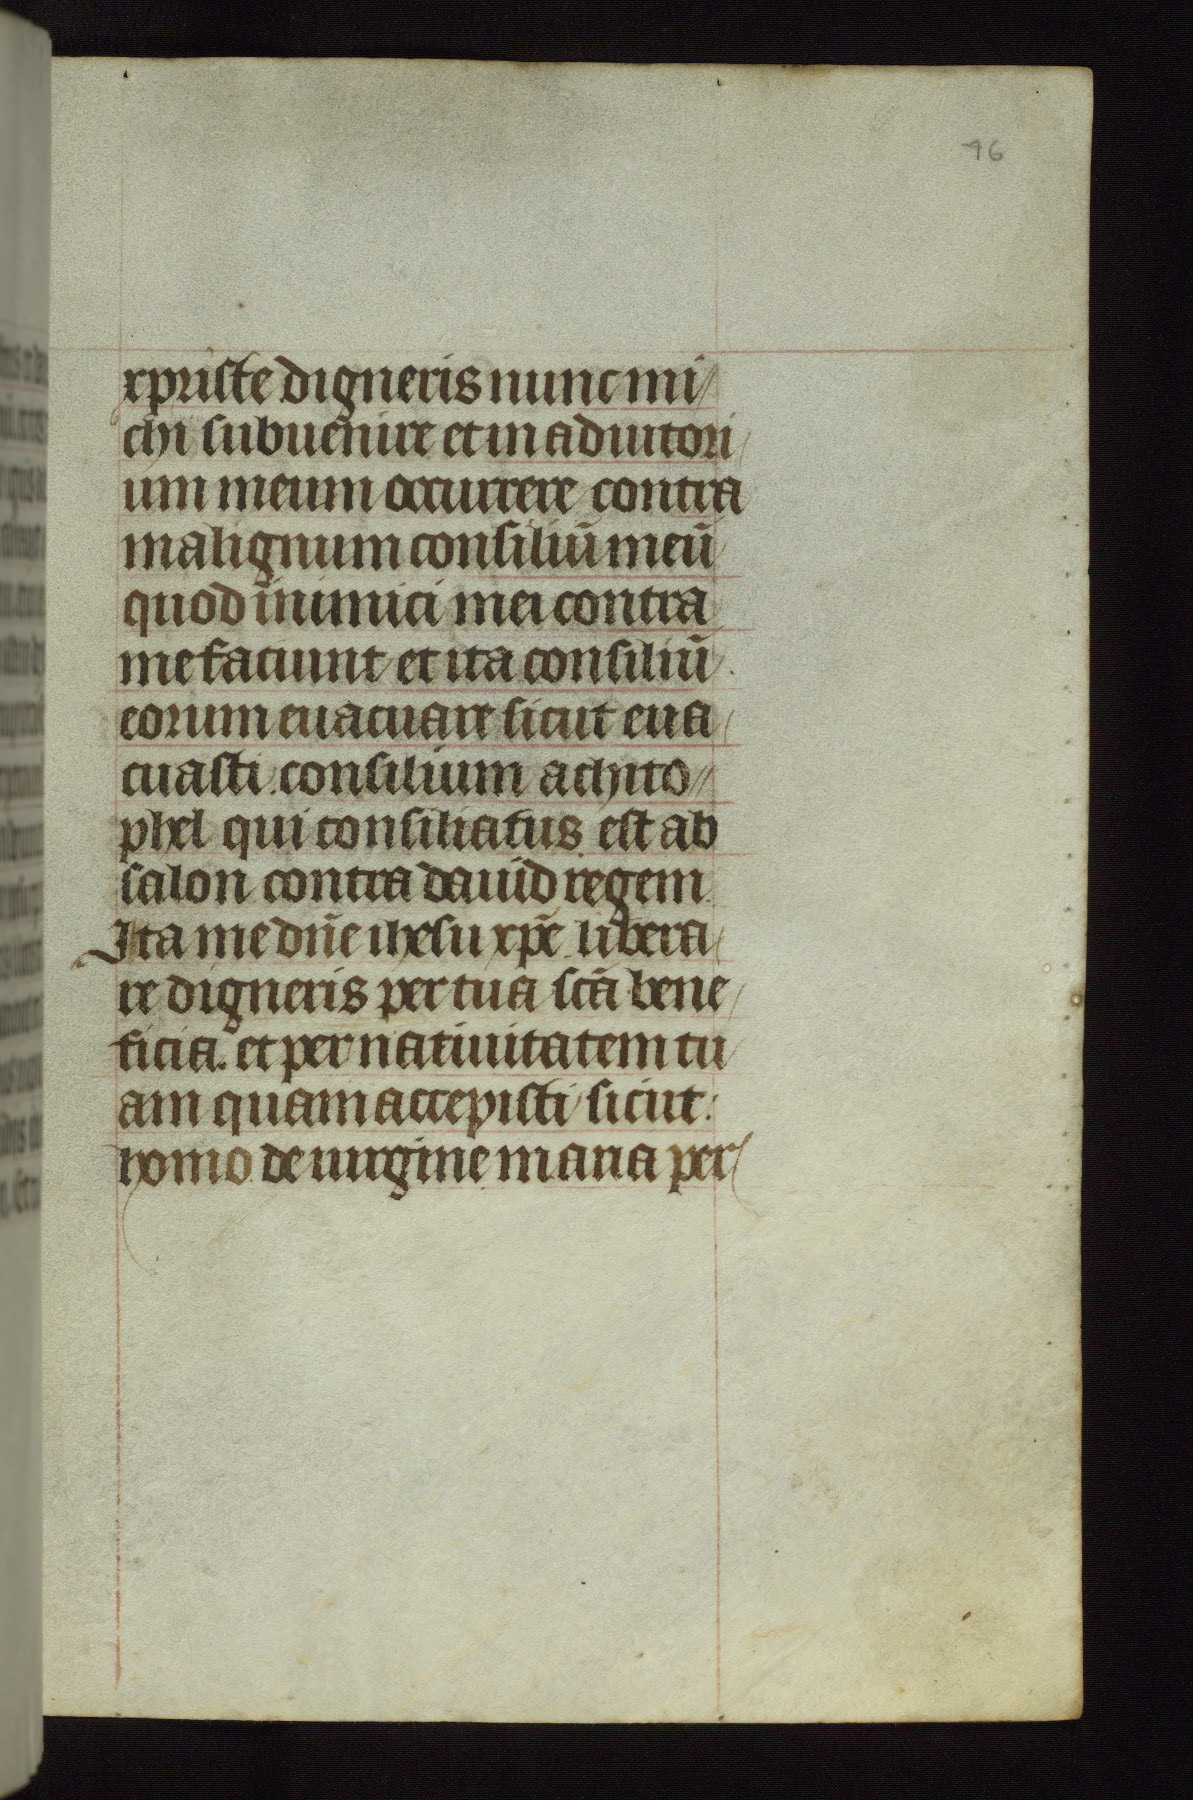 76
xpriste digneris nunc mi
chi subuenire et in adiutori
um meum occurrere contra
malignum consiliū meū
quod inimici mei contra
me faciunt et ita consiliū
eorum euacuare sicut eua
cuasti consilium achito
phel qui consiliatus est ab
salon contra dauid regem
Ita me dn̄e ihesu xp̄e libera
re digneris per tua sc̄a bene
ficia. et per natiuitatem tu
am quam accepisti sicut
homo de uirgine maria per